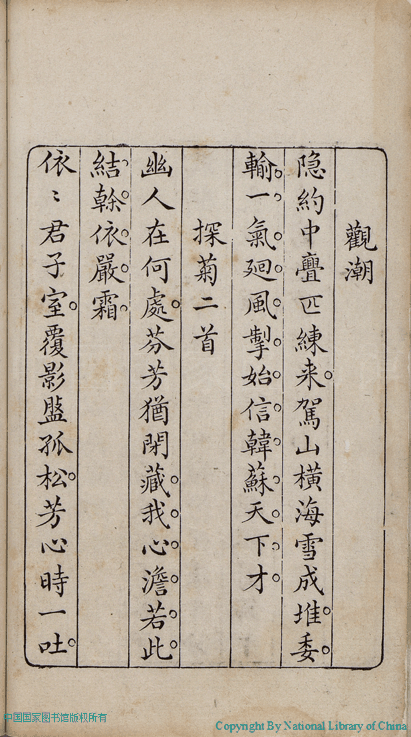 觀潮
隐約中亹匹練来。駕山橫海雪成堆。委。
輸。一。氣。廻。風。掣。始。信。韓。蘇。天。下。才。
探菊二首
幽人在何處。芬芳猶閉藏。我。心。澹。若。此。
結。榦。依。嚴。霜。
依〻君子室。覆影盬孤松。芳心時一吐。
中国国家图书馆版权所有
Copyright By National Library of China